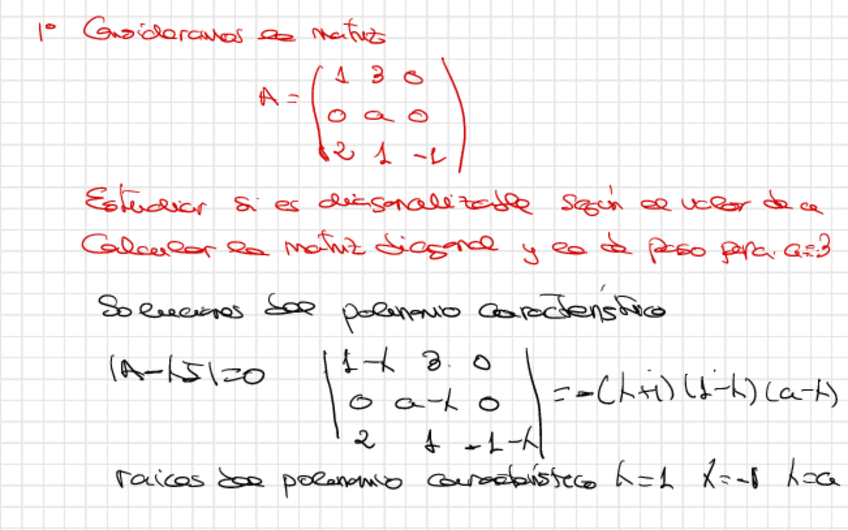 1º Consideramos la matriz
A = ( 1 3 0
0 a 0
2 1 -1 )
Estudiar si es diagonalizable según el valor de a
Calcular la matriz diagonal y la de paso para a=3
Soluciones del polinomio característico
|A-λI|=0 | 1-λ 3 0
0 a-λ 0 | = -(λ+1)(1-λ)(a-λ)
2 1 -1-λ |
raices del polinomio característico λ=1 λ=-1 λ=a